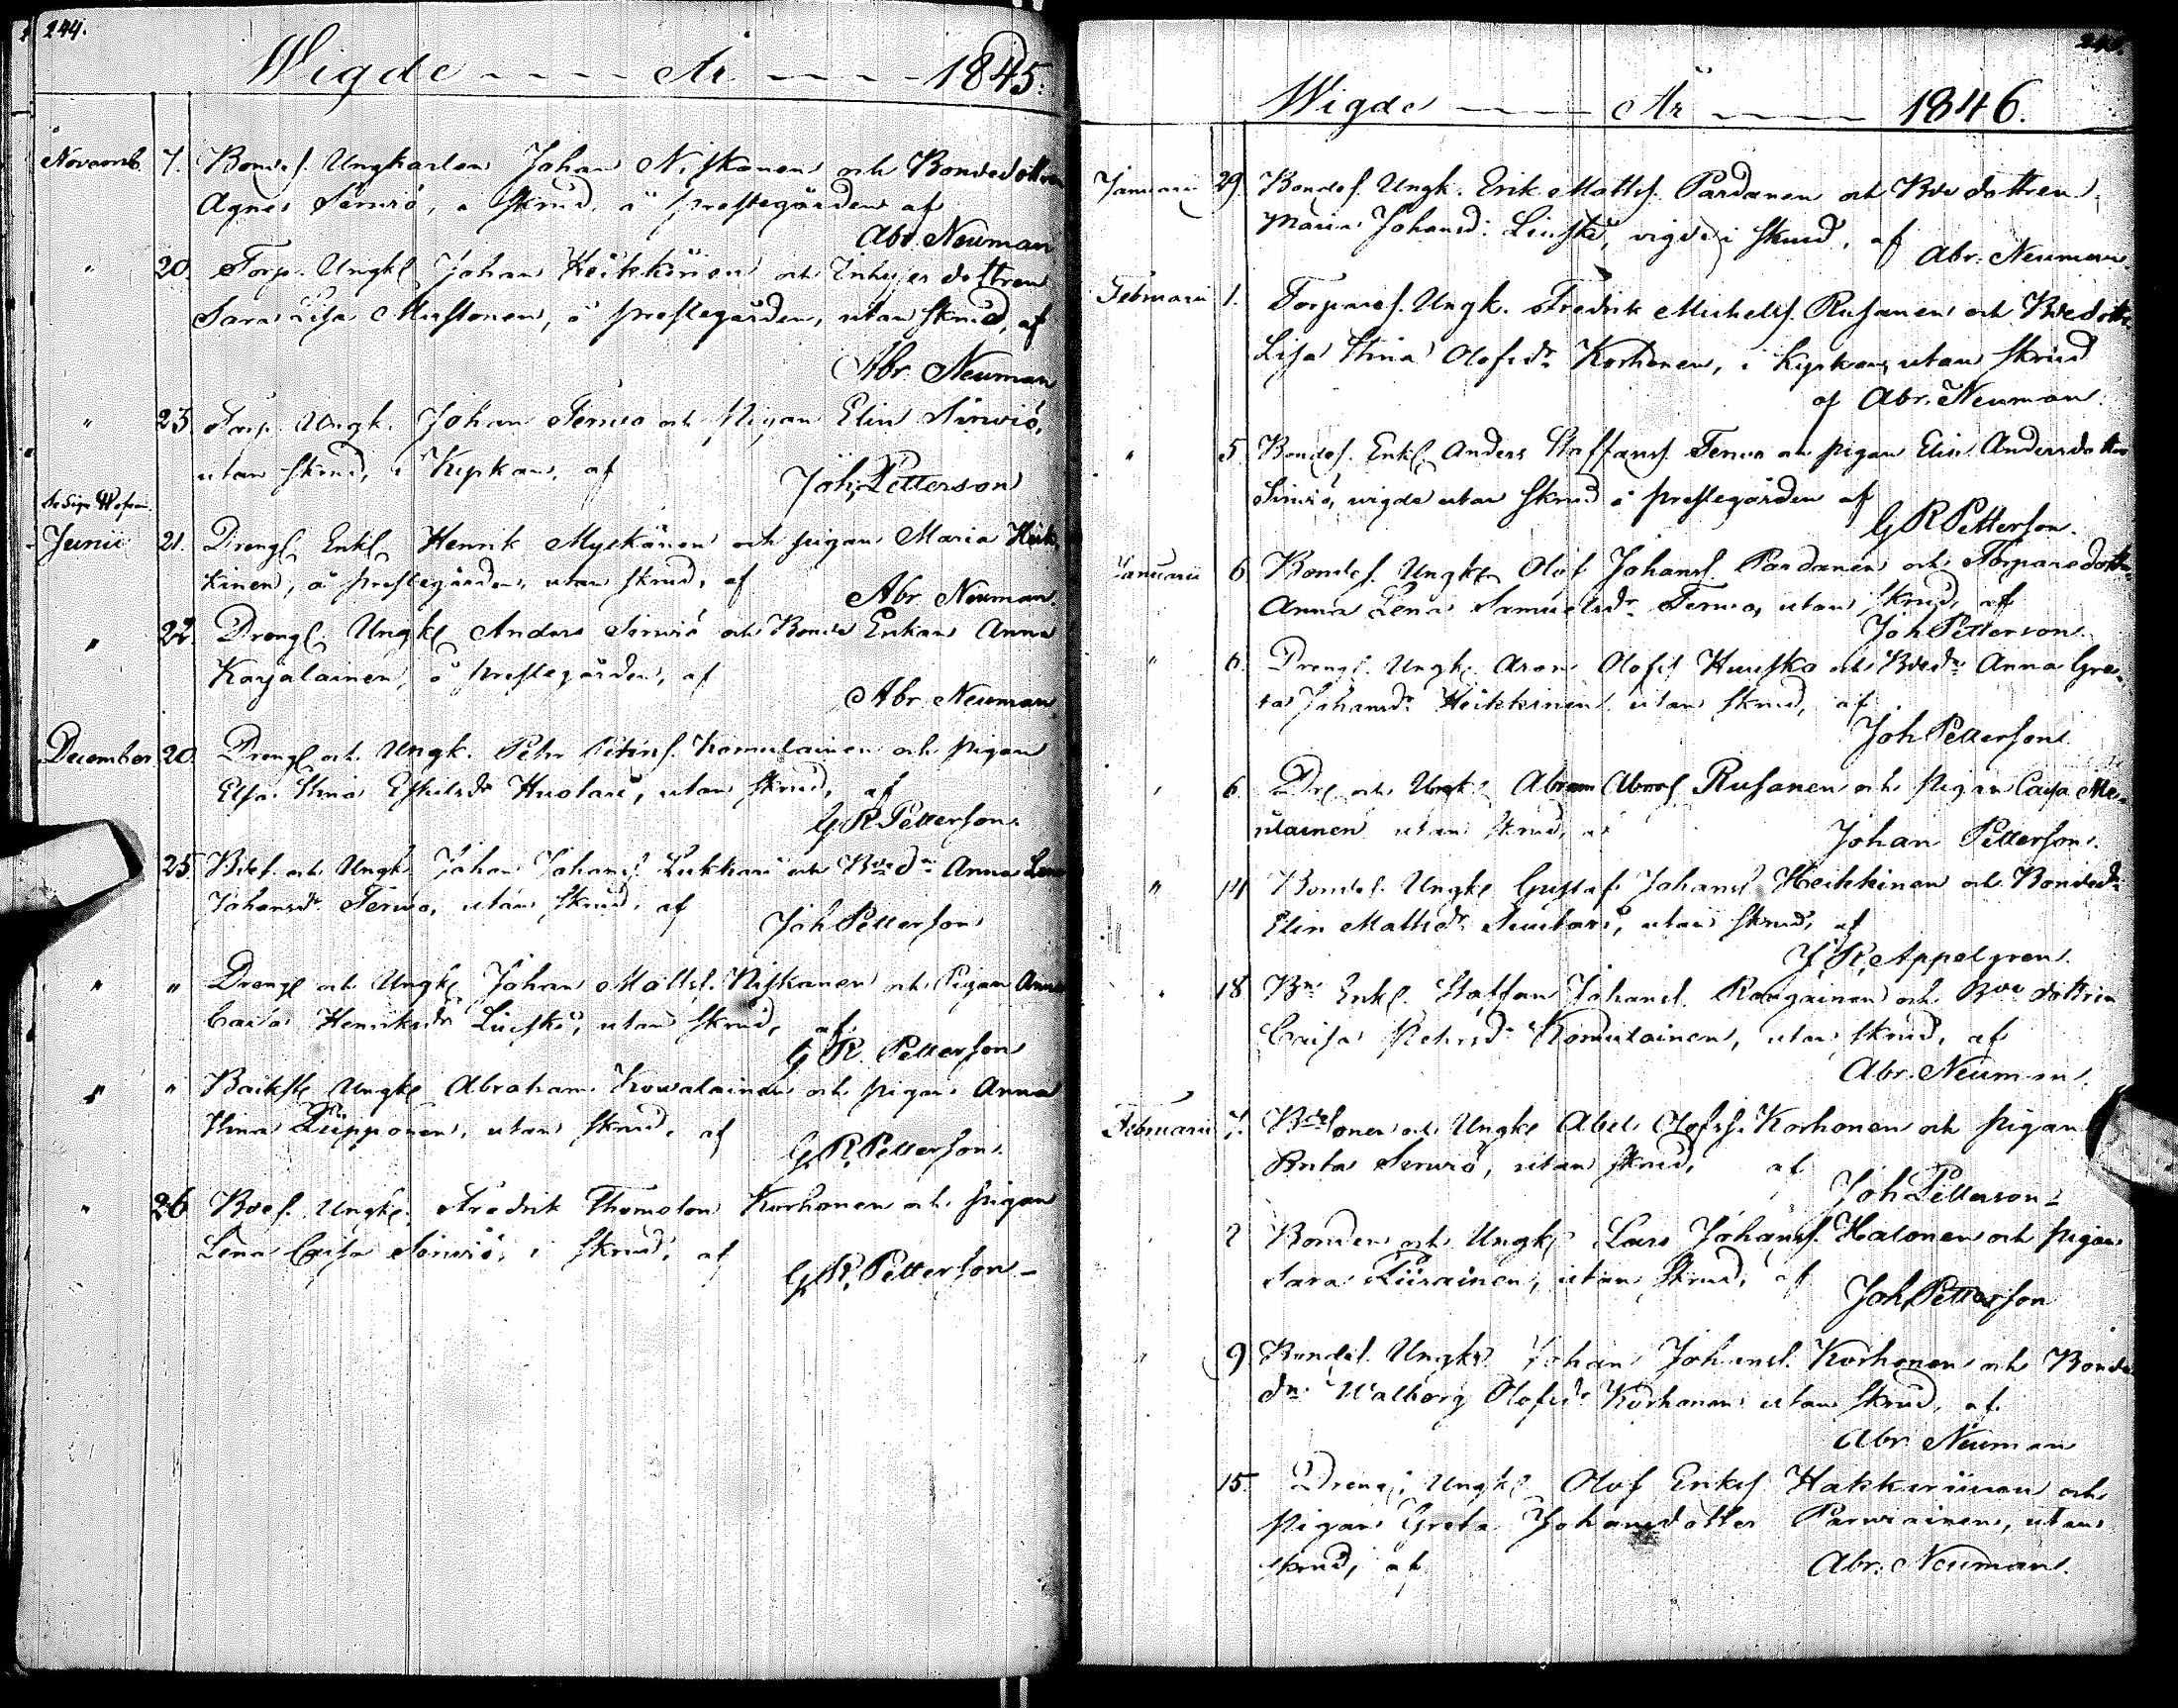 244.
Wigde - - - - År - - - - 1845.
Novemb. 7. Bondes. Ungkarlen Johan Niskanen och Bondedottren
Agnes Serviö, i skrud, å prestegården af
Abr. Neuman
" 20. Torp. Ungk. Johan Heikkinen och Inhyses dottren
Sara Lisa Mustonen, å prestegården, utan skrud, af
Abr. Neuman
" 23. Torp. Ungk. Johan Terwo och Pigan Elin Sirwiö,
utan skrud, i Kyrkan, af
Joh. Petterson
Junii 21. Drengl. Enkl. Henrik Myskänen och pigan Maria Heik-
kinen, å prestegården, utan skrud, af
Abr. Neuman.
" 22. Drengl. Ungk. Anders Sirwiö och Bonde Enkan Anna
Karjalainen, å prestegården, af
Abr. Neuman
December 20. Drengl. och Ungk. Petr Petters. Komulainen och pigan
Elsa Stina Eskilsdr Huotari, utan skrud, af
G R Petterson.
25. Bdes. och Ungk. Johan Johans. Lukkari och Bde dr Anna Lena
Johansdr Terwo, utan skrud, af
Joh Petterson
" " Drengl och Ungk. Johan Matts. Niskanen och Pigan Anna
Caisa Henriksdr Liuski, utan skrud, af
G R. Petterson
" " Ungk. Abraham Kowalainen och pigan Anna
Stina Piipponen, utan skrud, af
G. R. Petterson.
" 26 Bdes. Ungk. Fredrik Thomason Korhonen och pigan
Lena Caisa Sirwiö, i skrud, af
G. R. Petterson -
Wigde - - - År - - - 1846.
Januarii 29. Bondes. Ungk. Erik Matts. Pardanen och Bde dottren
Maria Johansd. Liuski, vigde i skrud, af
Abr. Neuman.
Februarii 1. Torpares. Ungk. Fredrik Michels. Rusanen och Bdedottr.
Lisa Stina Olofsdr Korhonen, i Kyrkan, utan skrud
af Abr. Neuman.
" 5 Bondes. Enkl. Anders Staffans. Terwo och pigan Elin Andersdotter
Sirwiö, wigde utan skrud å prestegården af
G R Petterson.
Januarii 6 Bondes. Ungk. Olof Johans. Pardanen och Torparedottr.
Anna Lena Samuelsdr Terwo, utan skrud, af
Joh Petterson.
" 6. Drengl. Ungk. Aron Olofss Hursko och Bdedr Anna Gre-
ta Johansdr Heikkinen utan skrud, af
Joh Petterson.
" 6. Drl och Ungk. Abram Abras. Rusanen och pigan Caisa Me-
riläinen utan skrud, af
Johan Petterson.
" 14 Bondes. Ungk. Gustaf Johans. Heikkinen och Bondedr
Elin Mattsdr Suutari, utan skrud, af
J. R. Appelgren.
" 18 Bn Enkl. Staffan Johans. Rongainen och Bde dottren
Caisa Petersdr Komulainen, utan skrud, af
Abr. Neuman.
Februarii 7. Bdesonen och Ungk. Abel Olofs. Korhonen och pigan
Brita Serviö, utan skrud, af
Joh Petterson
2 Bonden och Ungk. Lars Johans. Halonen och pigan
Sara Piirainen, utan skrud, af
Joh Petterson
" 9 Bondes. Ungk. Johan Johans. Korhonen och Bonde
dn. Walborg Olofsdr Korhonen utan skrud, af
Abr Neuman
15. Drengl. Ungk. Olof Eriks. Hakkarainen och
pigan Greta Johansdotter Parwiainen, utan
skrud, af
Abr. Neuman.